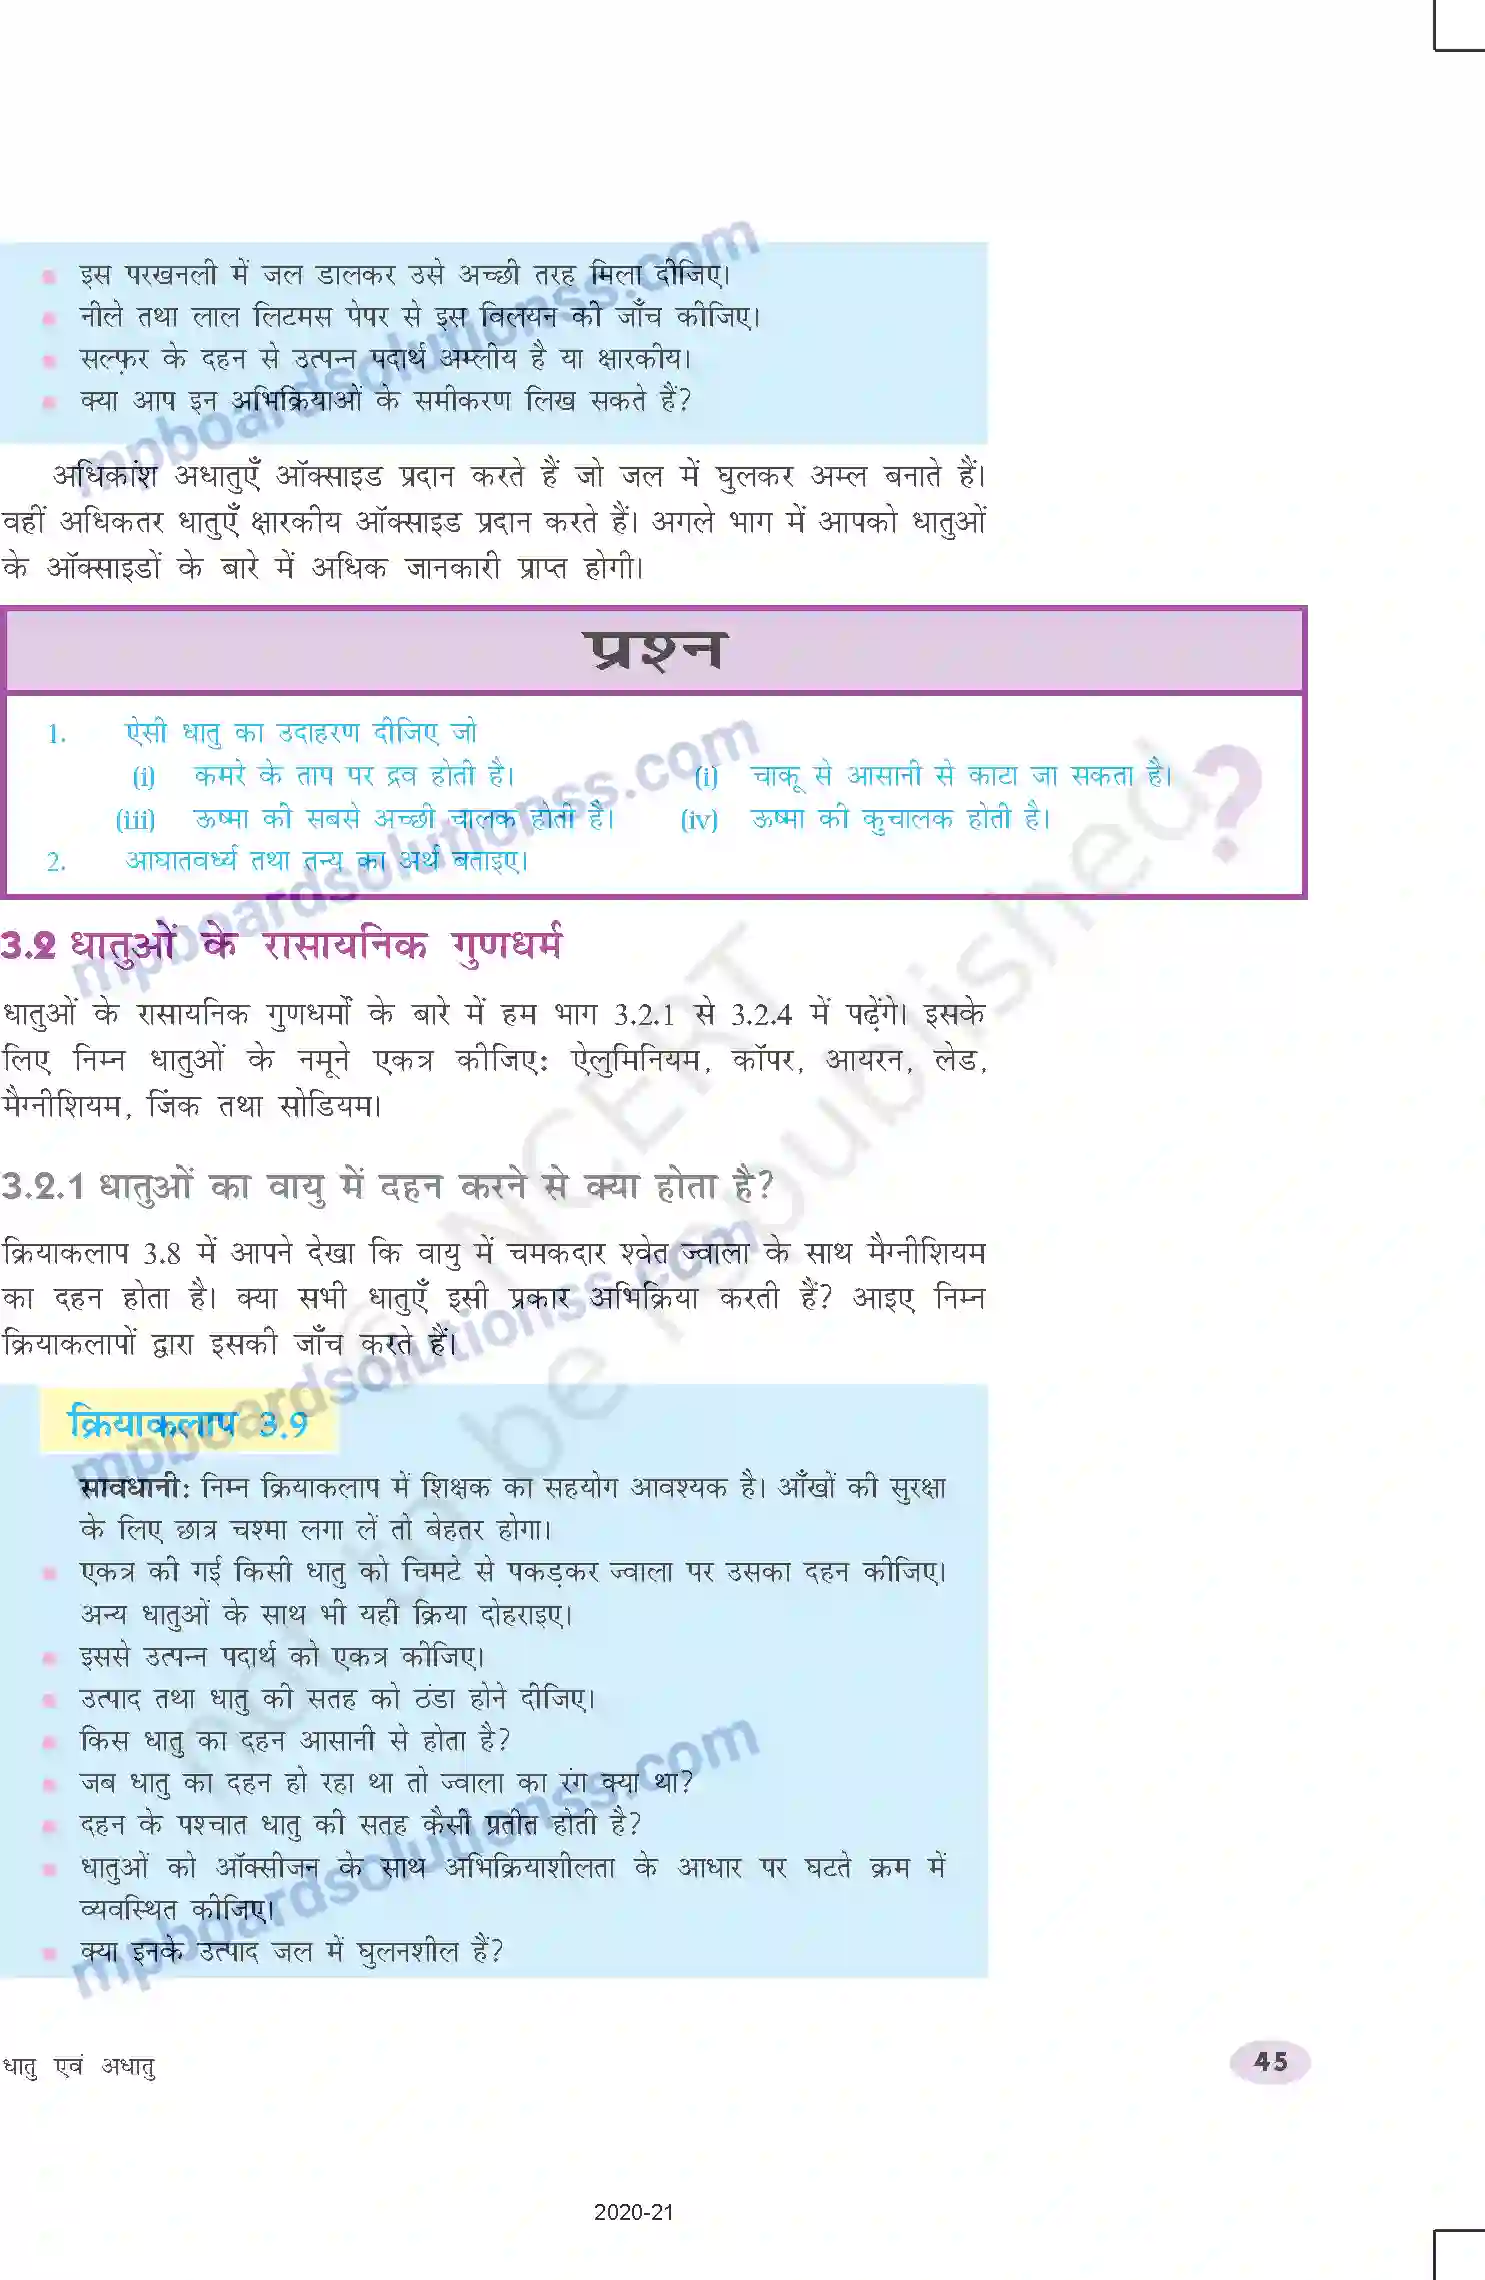 इस परखनली में जल डालकर उसे अच्छी तरह मिला दीजिए।
नीले तथा लाल लिटमस पेपर से इस विलयन की जाँच कीजिए।
सल्फ़र के दहन से उत्पन्न पदार्थ अम्लीय है या क्षारकीय।
क्या आप इन अभिक्रियाओं के समीकरण लिख सकते हैं?
अधिकांश अधातुएँ ऑक्साइड प्रदान करते हैं जो जल में घुलकर अम्ल बनाते हैं।
वहीं अधिकतर धातुएँ क्षारकीय ऑक्साइड प्रदान करते हैं। अगले भाग में आपको धातुओं
के ऑक्साइडों के बारे में अधिक जानकारी प्राप्त होगी।
प्रश्न
1. ऐसी धातु का उदाहरण दीजिए जो
(i) कमरे के ताप पर द्रव होती है। (i) चाकू से आसानी से काटा जा सकता है।
(iii) ऊष्मा की सबसे अच्छी चालक होती है। (iv) ऊष्मा की कुचालक होती है।
2. आघातवर्ध्य तथा तन्य का अर्थ बताइए।
?
3.2 धातुओं के रासायनिक गुणधर्म
धातुओं के रासायनिक गुणधर्मों के बारे में हम भाग 3.2.1 से 3.2.4 में पढ़ेंगे। इसके
लिए निम्न धातुओं के नमूने एकत्र कीजिए: ऐलुमिनियम, कॉपर, आयरन, लेड,
मैग्नीशियम, जिंक तथा सोडियम।
3.2.1 धातुओं का वायु में दहन करने से क्या होता है?
क्रियाकलाप 3.8 में आपने देखा कि वायु में चमकदार श्वेत ज्वाला के साथ मैग्नीशियम
का दहन होता है। क्या सभी धातुएँ इसी प्रकार अभिक्रिया करती हैं? आइए निम्न
क्रियाकलापों द्वारा इसकी जाँच करते हैं।
क्रियाकलाप 3.9
सावधानी: निम्न क्रियाकलाप में शिक्षक का सहयोग आवश्यक है। आँखों की सुरक्षा
के लिए छात्र चश्मा लगा लें तो बेहतर होगा।
एकत्र की गई किसी धातु को चिमटे से पकड़कर ज्वाला पर उसका दहन कीजिए।
अन्य धातुओं के साथ भी यही क्रिया दोहराइए।
इससे उत्पन्न पदार्थ को एकत्र कीजिए।
उत्पाद तथा धातु की सतह को ठंडा होने दीजिए।
किस धातु का दहन आसानी से होता है?
जब धातु का दहन हो रहा था तो ज्वाला का रंग क्या था?
दहन के पश्चात धातु की सतह कैसी प्रतीत होती है?
धातुओं को ऑक्सीजन के साथ अभिक्रियाशीलता के आधार पर घटते क्रम में
व्यवस्थित कीजिए।
क्या इनके उत्पाद जल में घुलनशील हैं?
धातु एवं अधातु
45
2020-21
mpboardsolutionss.com
mpboardsolutionss.com
mpboardsolutionss.com
mpboardsolutionss.com
© NCERT
not to be republished